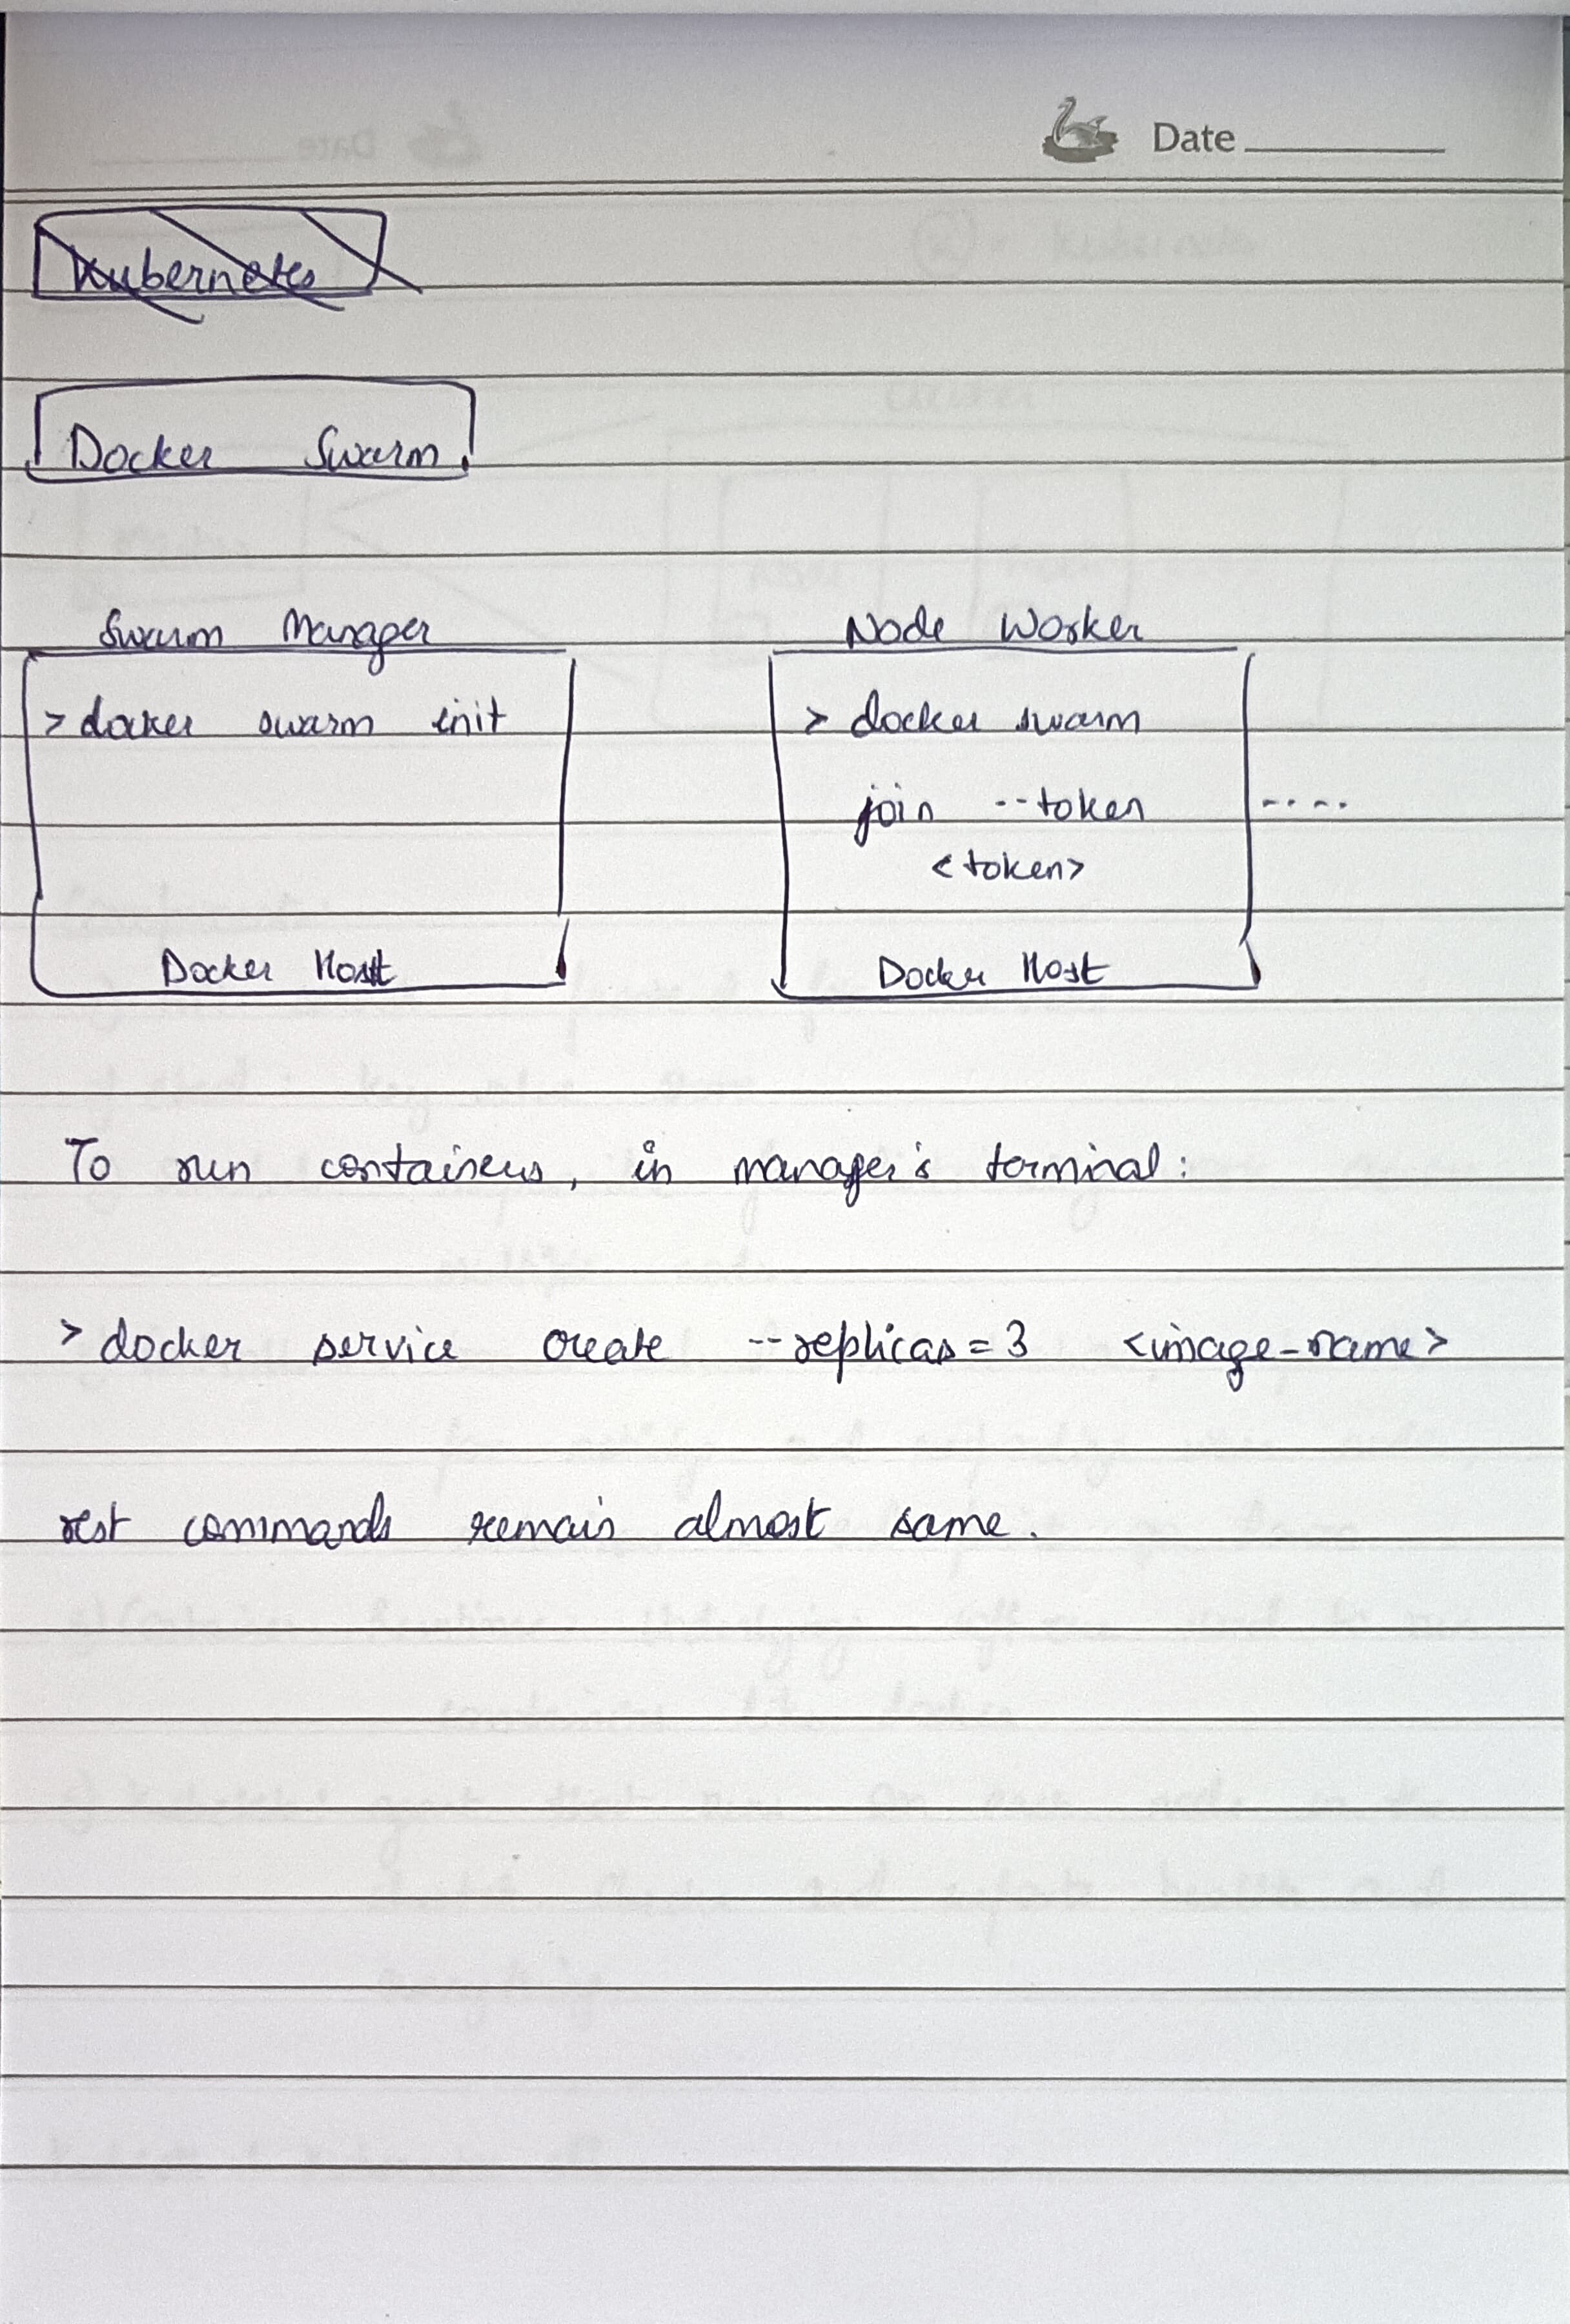 Date
Kubernetes
Docker Swarm
Swarm Manager
> docker swarm init
Docker Host
Node Worker
> docker swarm
join --token
<token>
Docker Host
....
To run containers, in manager's terminal:
> docker service create --replicas=3 <image-name>
rest commands remain almost same.